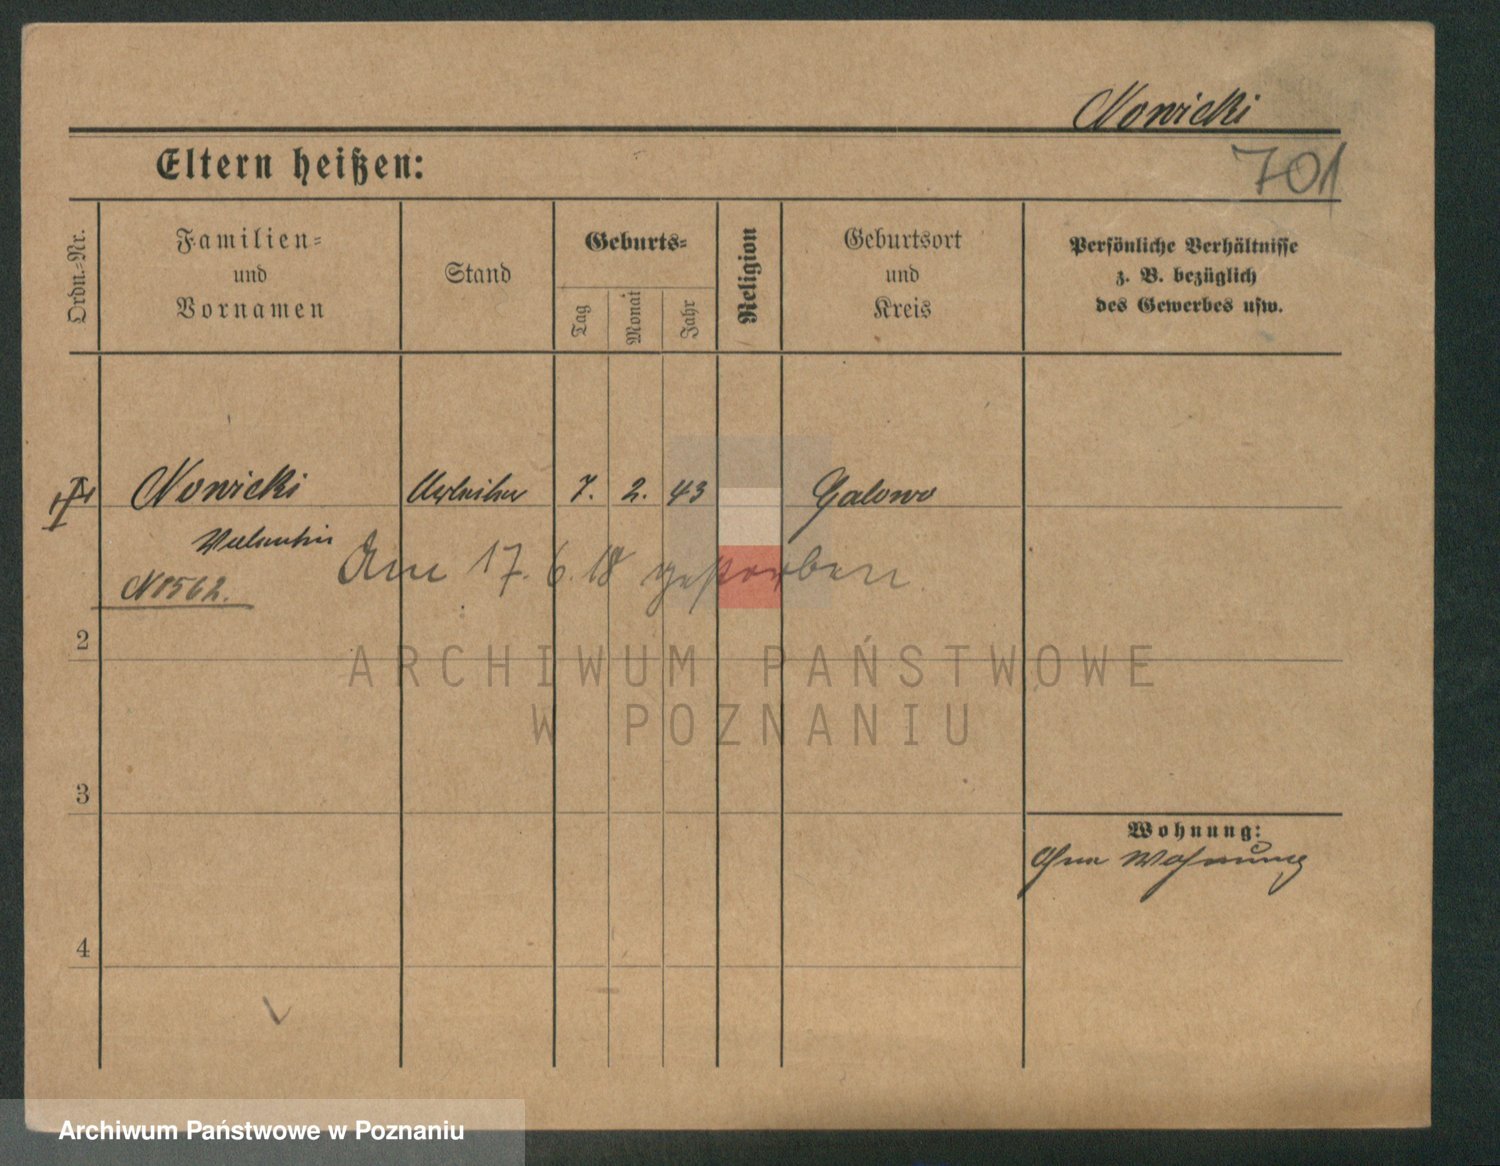 Nowicki
701
Eltern heißen:
Ordn.=Nr.
Familien=
und
Vornamen
Stand
Geburts=
Tag
Monat
Jahr
Religion
Geburtsort
und
Kreis
Persönliche Verhältnisse
z. B. bezüglich
des Gewerbes usw.
1 Nowicki Arbeiter 7. 2. 43 Galowo
Valentin
Am 17.6.18 gestorben
N 8562.
2
ARCHIWUM PAŃSTWOWE
W POZNANIU
3
Wohnung:
Ohne Wohnung
4
Archiwum Państwowe w Poznaniu